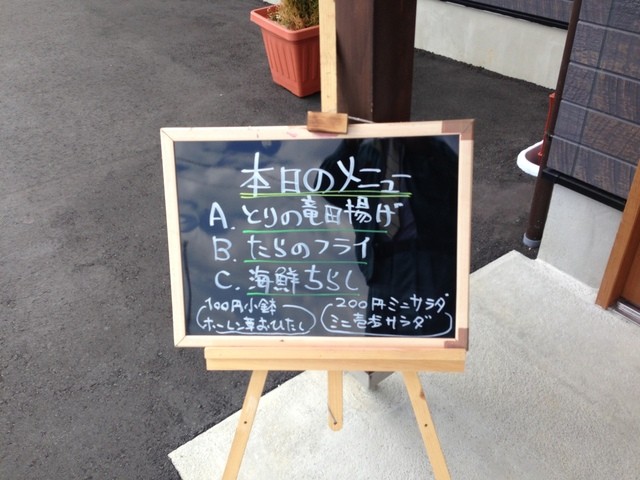 本日のメニュー
A. とりの竜田揚げ
B. たらのフライ
C. 海鮮ちらし
100円小鉢
ホーレン草おひたし
200円ミニサラダ
ミニ壱歩サラダ